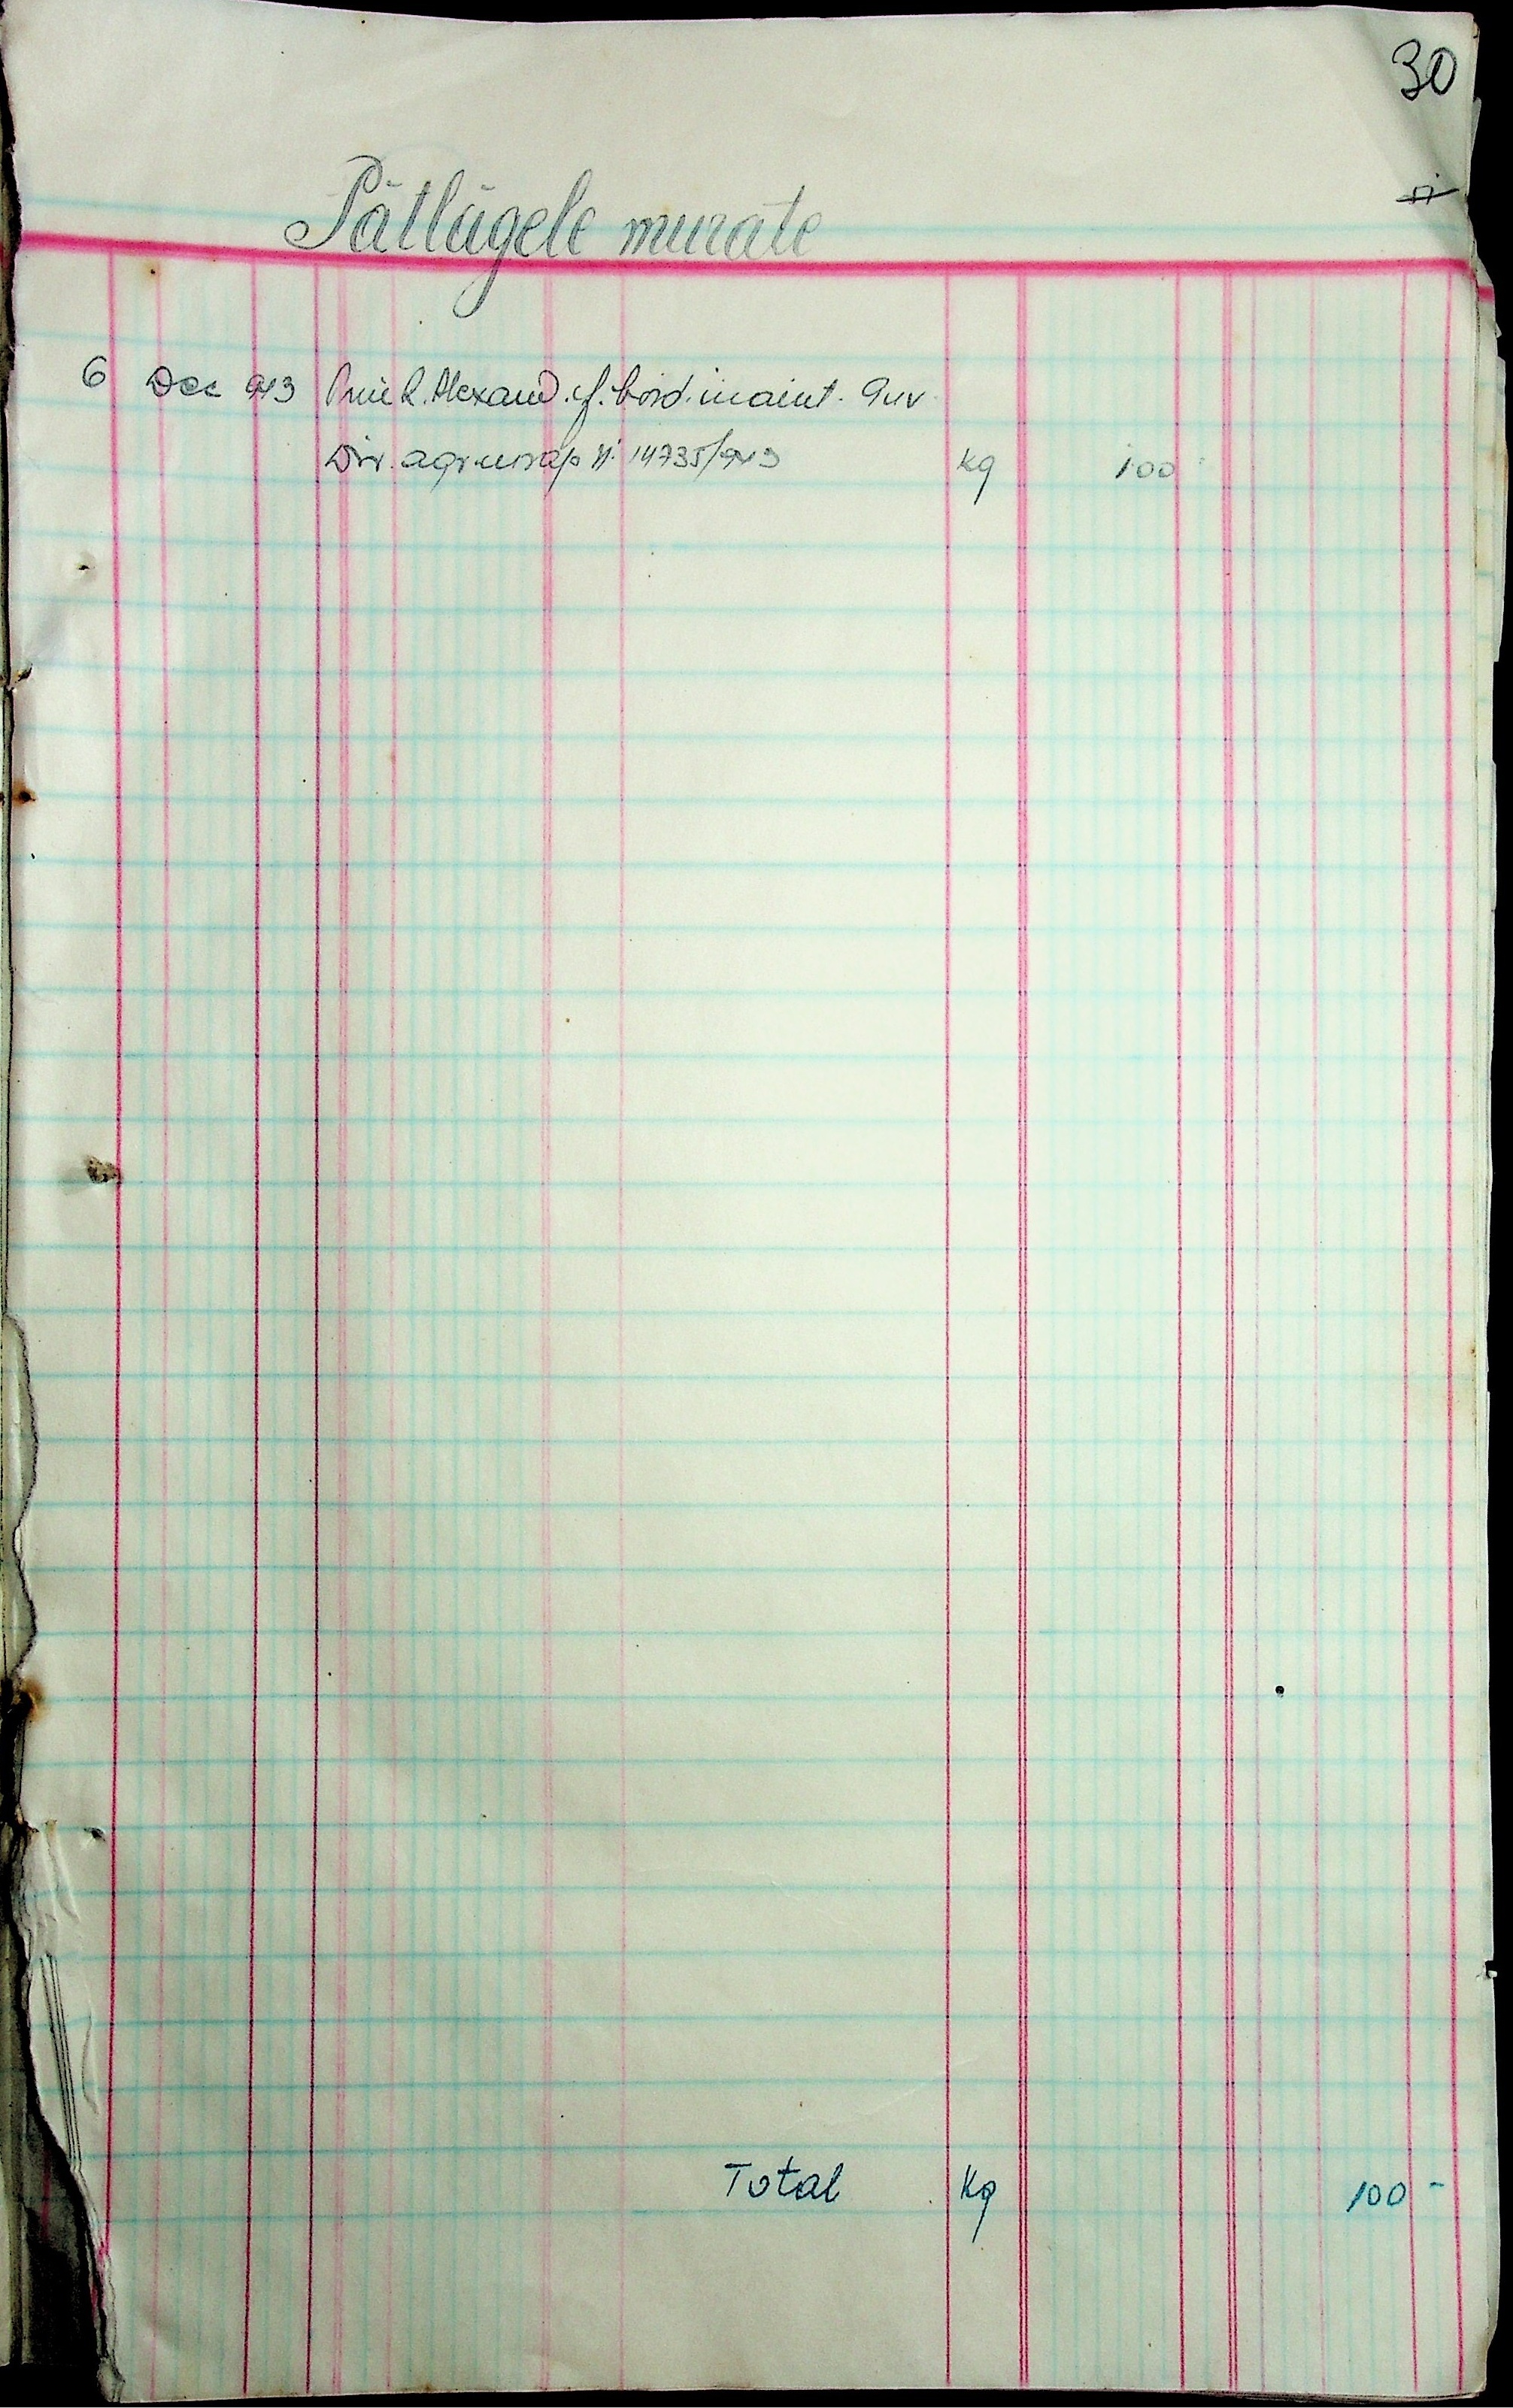 30
Pătlăgele murate
6 Dec 943 Prim R. Alexand. cf. bord. inaint. Guv
Dir. agr. cu rap N: 14735/943 kg 100
Total Kg 100 -